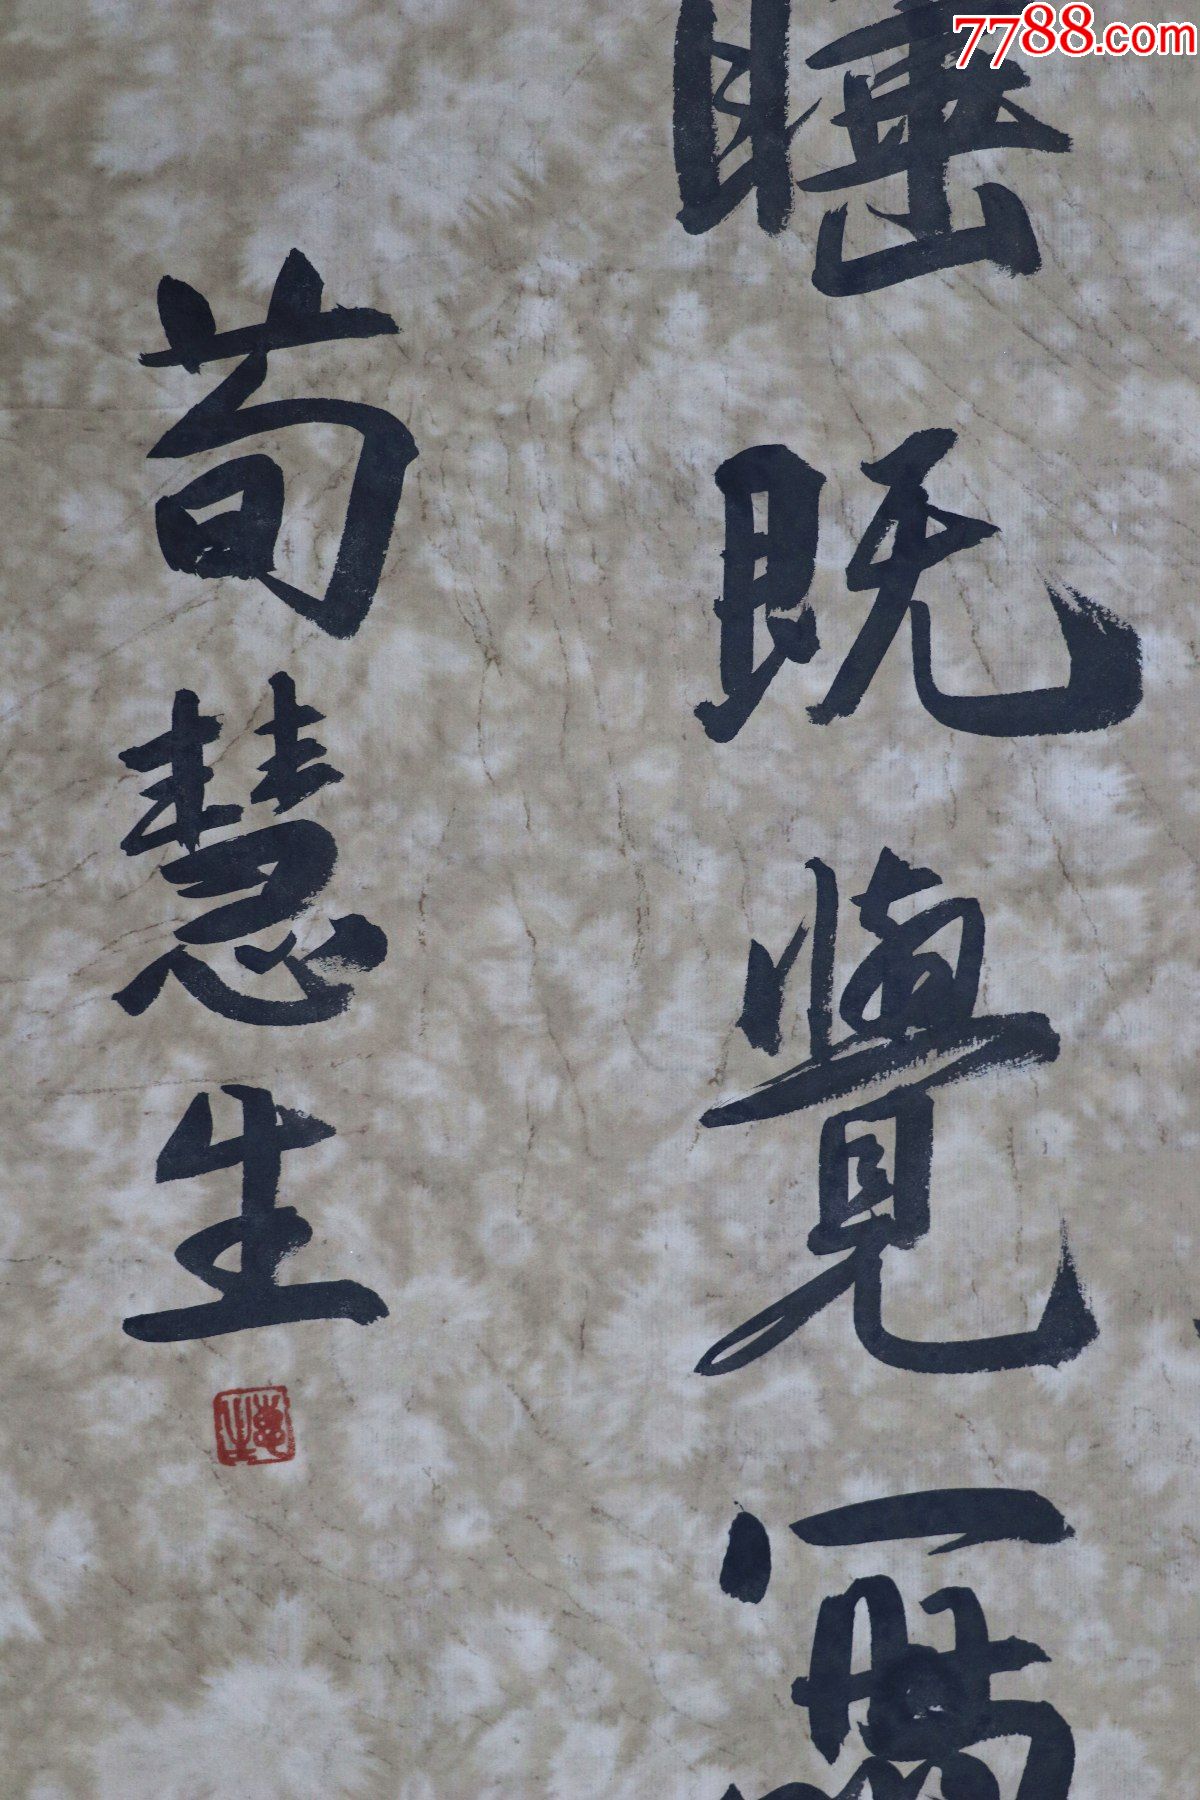 7788.com
睡既覺寫
荀慧生
慧生